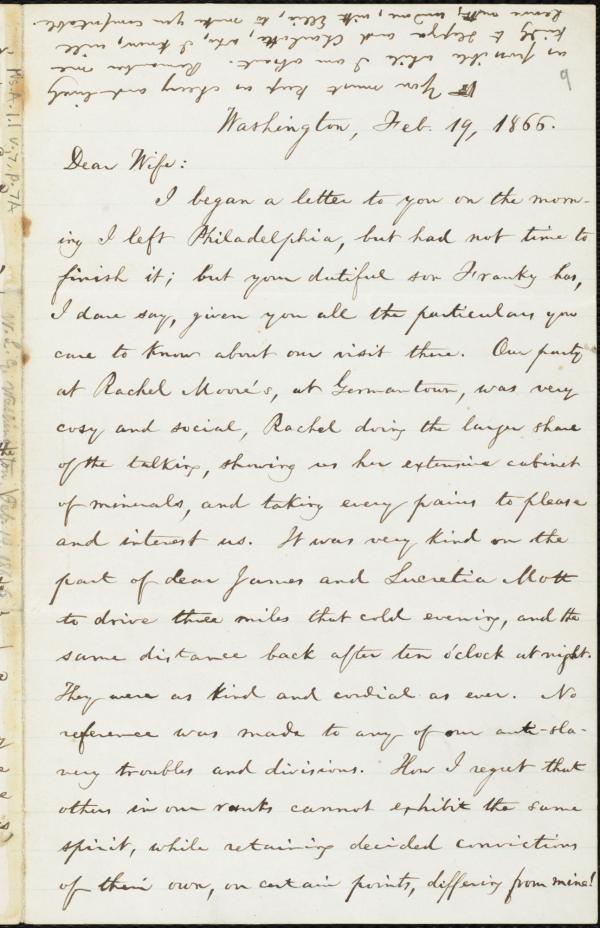 You must keep as cheery and lively
as possible while I am absent. Remember me
kindly to Hepza and Charlotte, who, I know, will
unite with Ellie, to make you comfortable.
9
Washington, Feb. 19, 1866.
Dear Wife:
I began a letter to you on the morn-
ing I left Philadelphia, but had not time to
finish it; but your dutiful son Franky has,
I dare say, given you all the particulars you
care to know about our visit there. Our party
at Rachel Moore's, at Germantown, was very
cosy and social, Rachel doing the larger share
of the talking, showing us her extensive cabinet
of minerals, and taking every pains to please
and interest us. It was very kind on the
part of dear James and Lucretia Mott
to drive three miles that cold evening, and the
same distance back after ten o'clock at night.
They were as kind and cordial as ever. No
reference was made to any of our anti-sla-
very troubles and divisions. How I regret that
others in our ranks cannot exhibit the same
spirit, while retaining decided convictions
of their own, on certain points, differing from mine!
Ms.A.1.1 v.7, p.7A
W. L. G. Washington Feb. 19, 1866